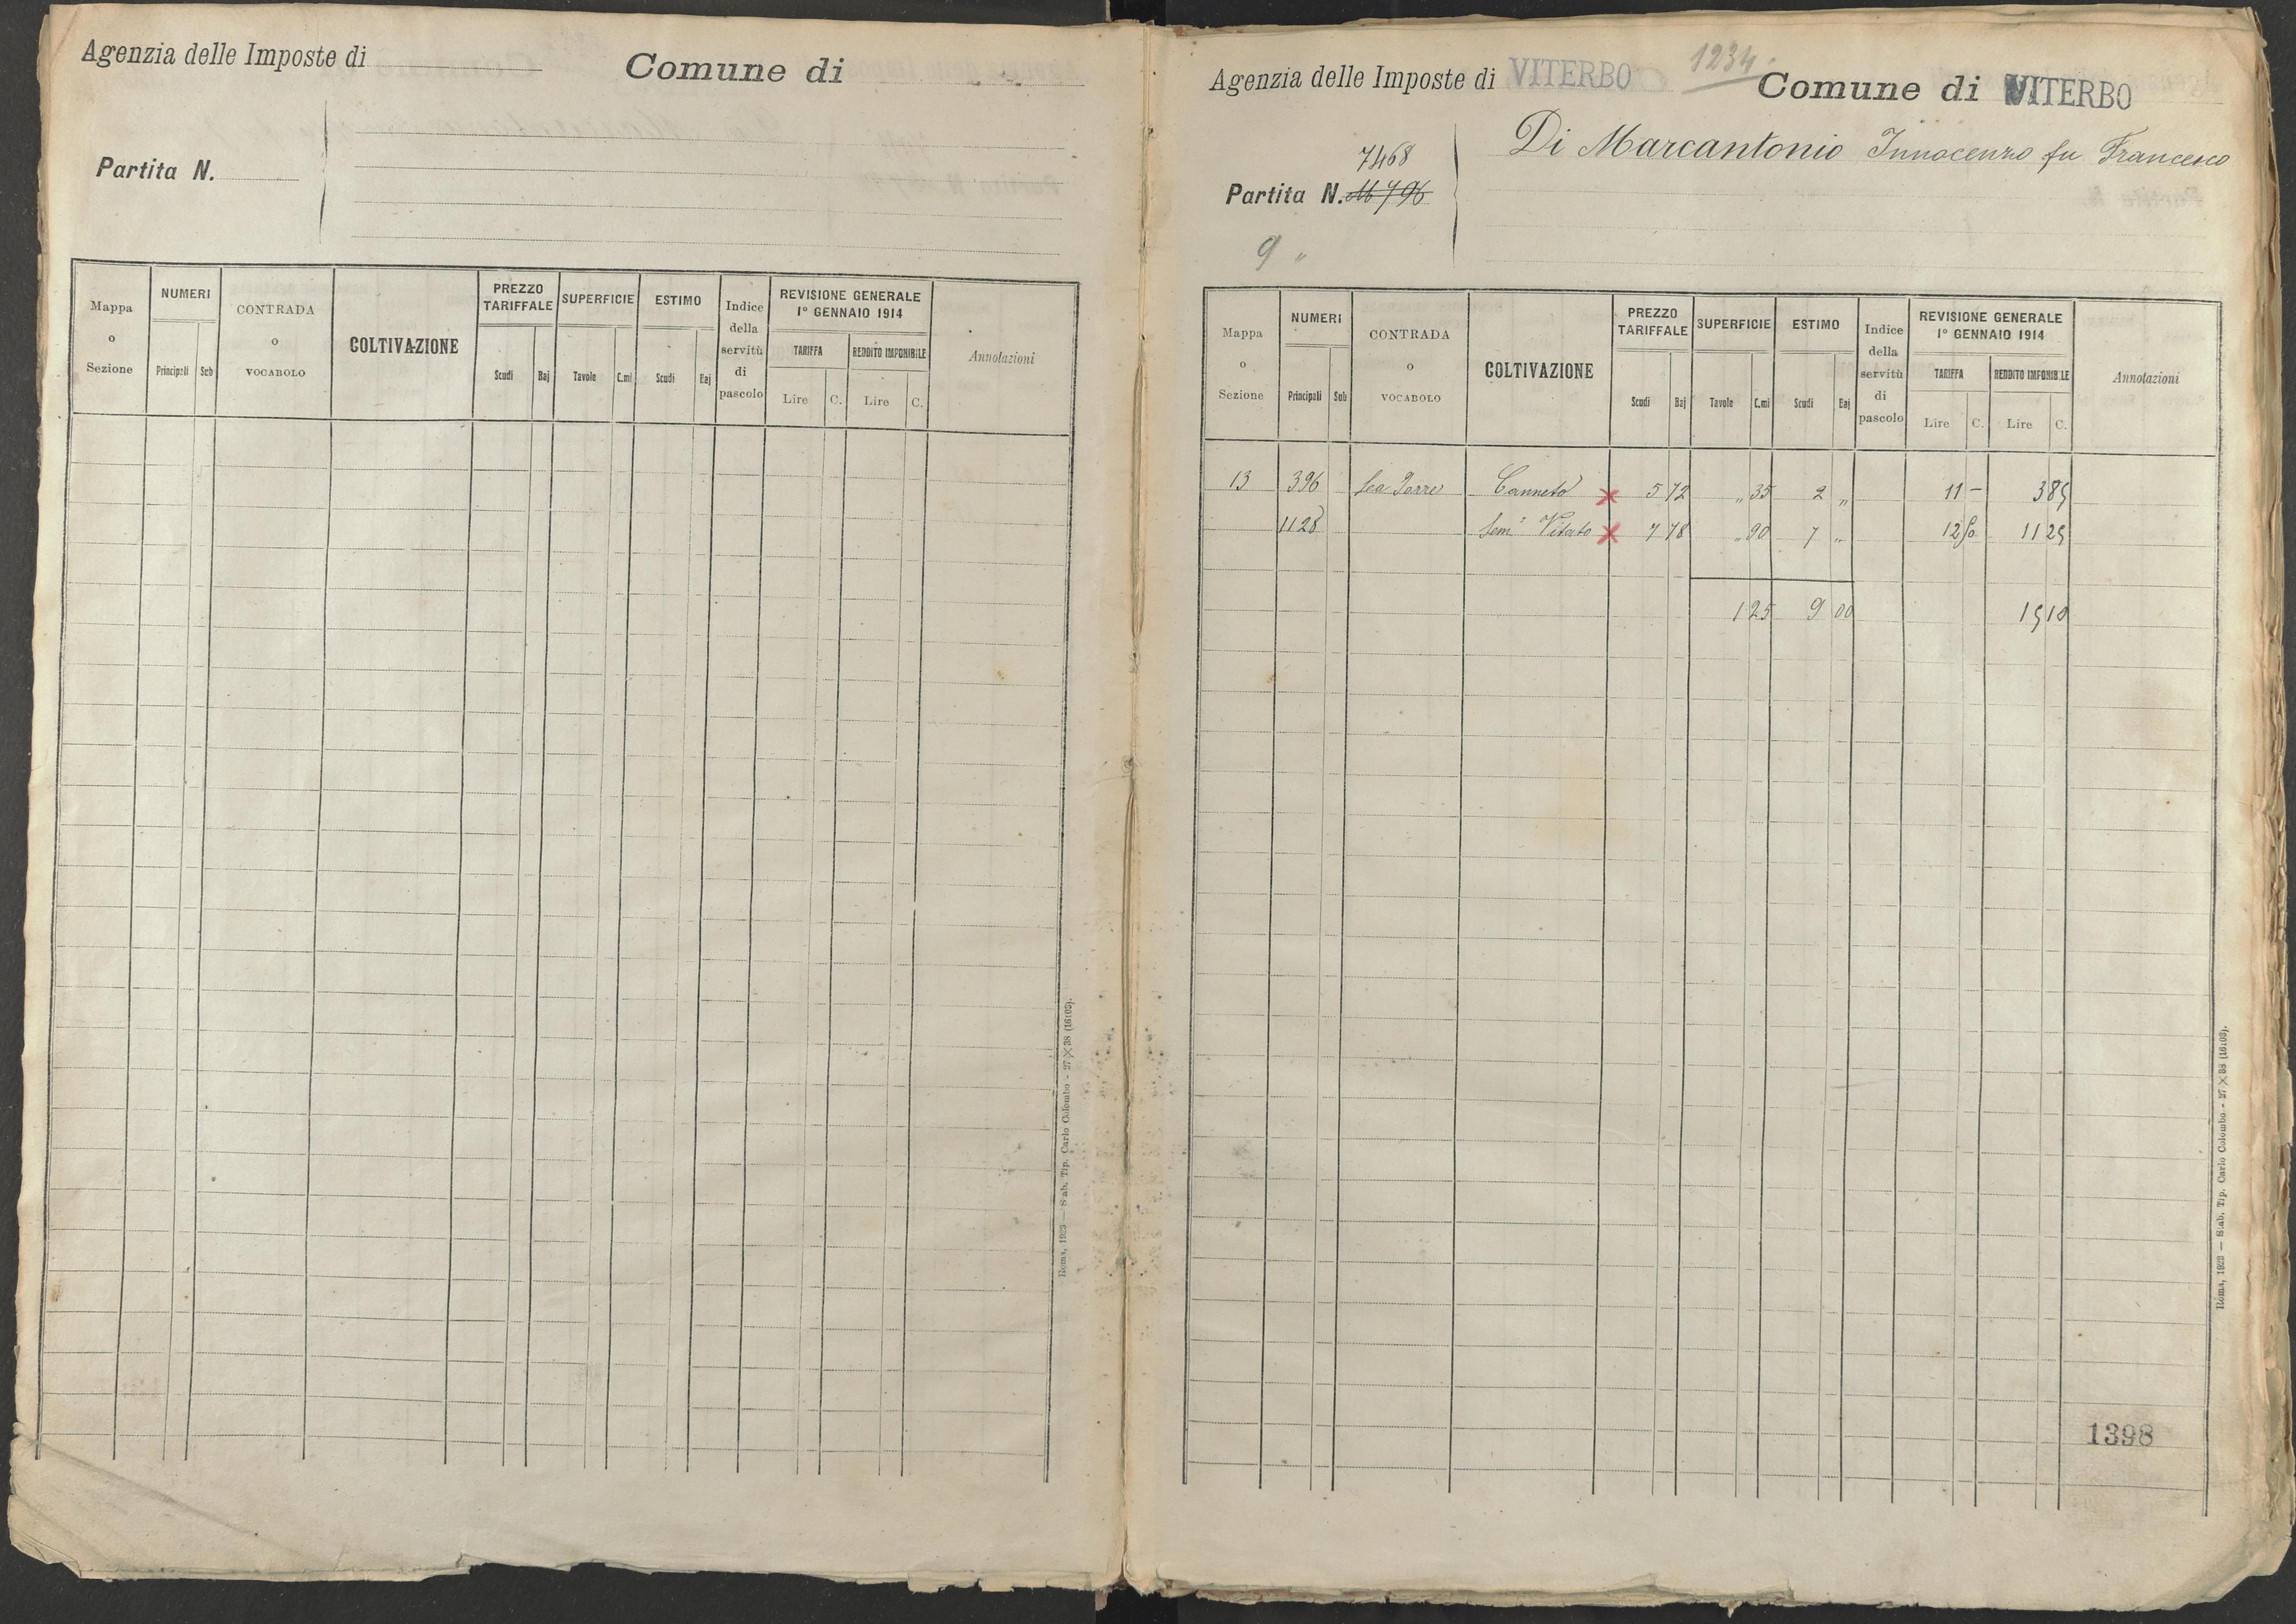 Agenzia delle Imposte di
Comune di
Partita N.
Mappa o Sezione
NUMERI
Principali Sub
CONTRADA o VOCABOLO
COLTIVAZIONE
PREZZO TARIFFALE
Scudi Baj
SUPERFICIE
Tavole C.mi
ESTIMO
Scudi Baj
Indice della servitù di pascolo
REVISIONE GENERALE
1° GENNAIO 1914
TARIFFA
Lire C.
RENDITO IMPONIBILE
Lire C.
Annotazioni
Roma, 1923 — Stab. Tip. Carlo Colombo - 27×38 (16103).
Agenzia delle Imposte di VITERBO
1234.
Comune di VITERBO
7468
Partita N.
9 "
Di Marcantonio Innocenzo fu Francesco
Mappa o Sezione
NUMERI
Principali Sub
CONTRADA o VOCABOLO
COLTIVAZIONE
PREZZO TARIFFALE
Scudi Baj
SUPERFICIE
Tavole C.mi
ESTIMO
Scudi Baj
Indice della servitù di pascolo
REVISIONE GENERALE
1° GENNAIO 1914
TARIFFA
Lire C.
RENDITO IMPONIBILE
Lire C.
Annotazioni
13 396 La Torre Canneto x 5 72 " 35 2 " 11 - 3 85
1128 Sem° Vitato x 7 78 " 90 7 " 12 50 11 25
1 25 9 00 15 10
1398
Roma, 1923 — Stab. Tip. Carlo Colombo - 27×38 (16103).